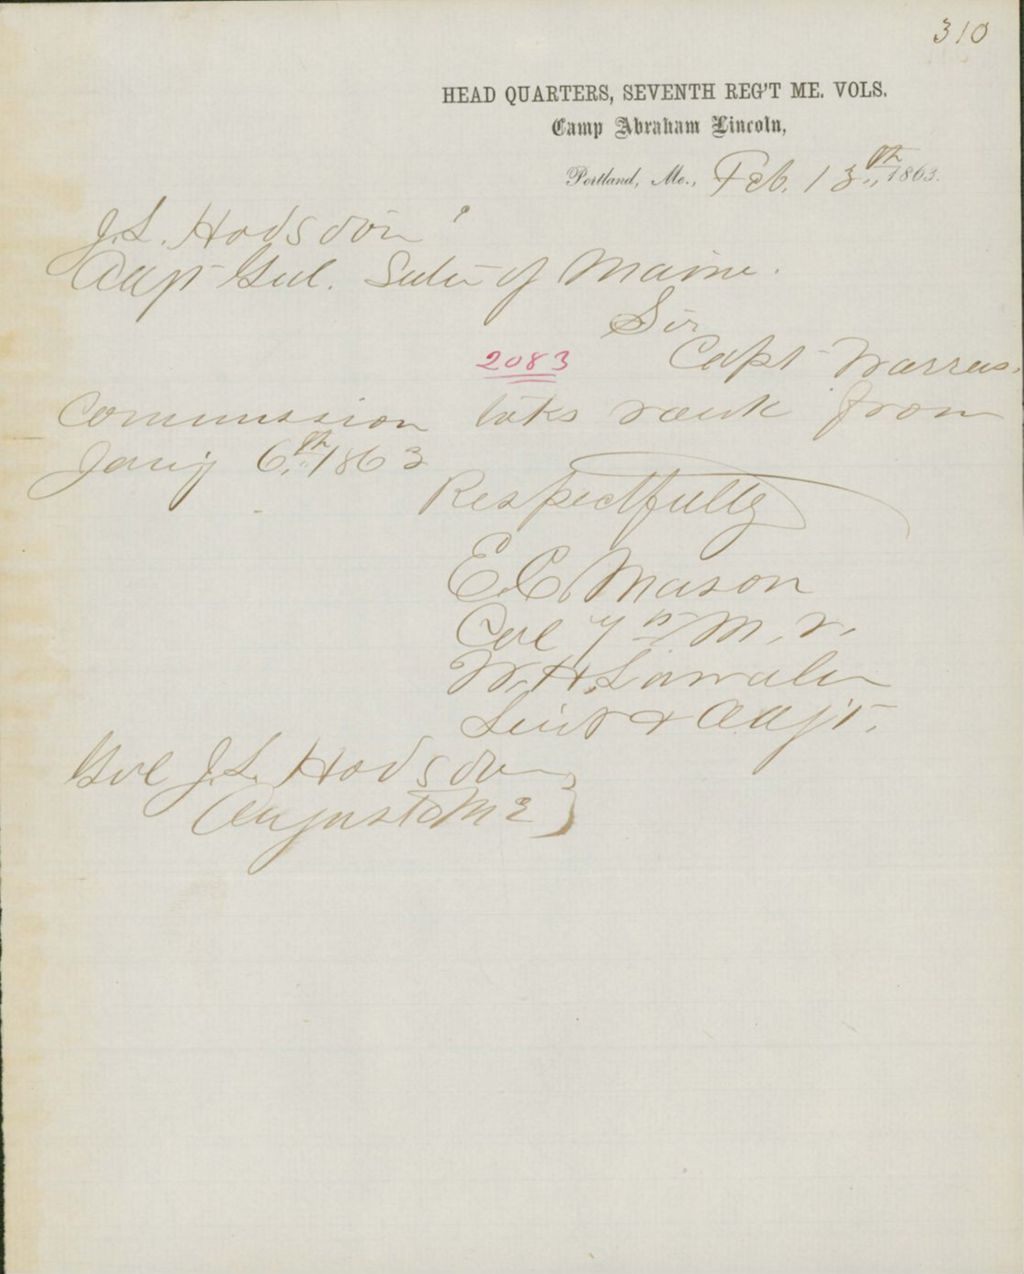 310
HEAD QUARTERS, SEVENTH REG'T ME. VOLS.
Camp Abraham Lincoln,
Portland, Me., Feb. 13th, 1863.
J. L. Hodsdon
Adjt Genl. State of Maine.
Sir
2083 Capt Warrens
Commission take rank from
Jany 6th 1863
Respectfully
E. C. Mason
Col 7th M. V.
W. H.
Leiut & Adj't.
Genl J. L. Hodsdon
Augusta Me